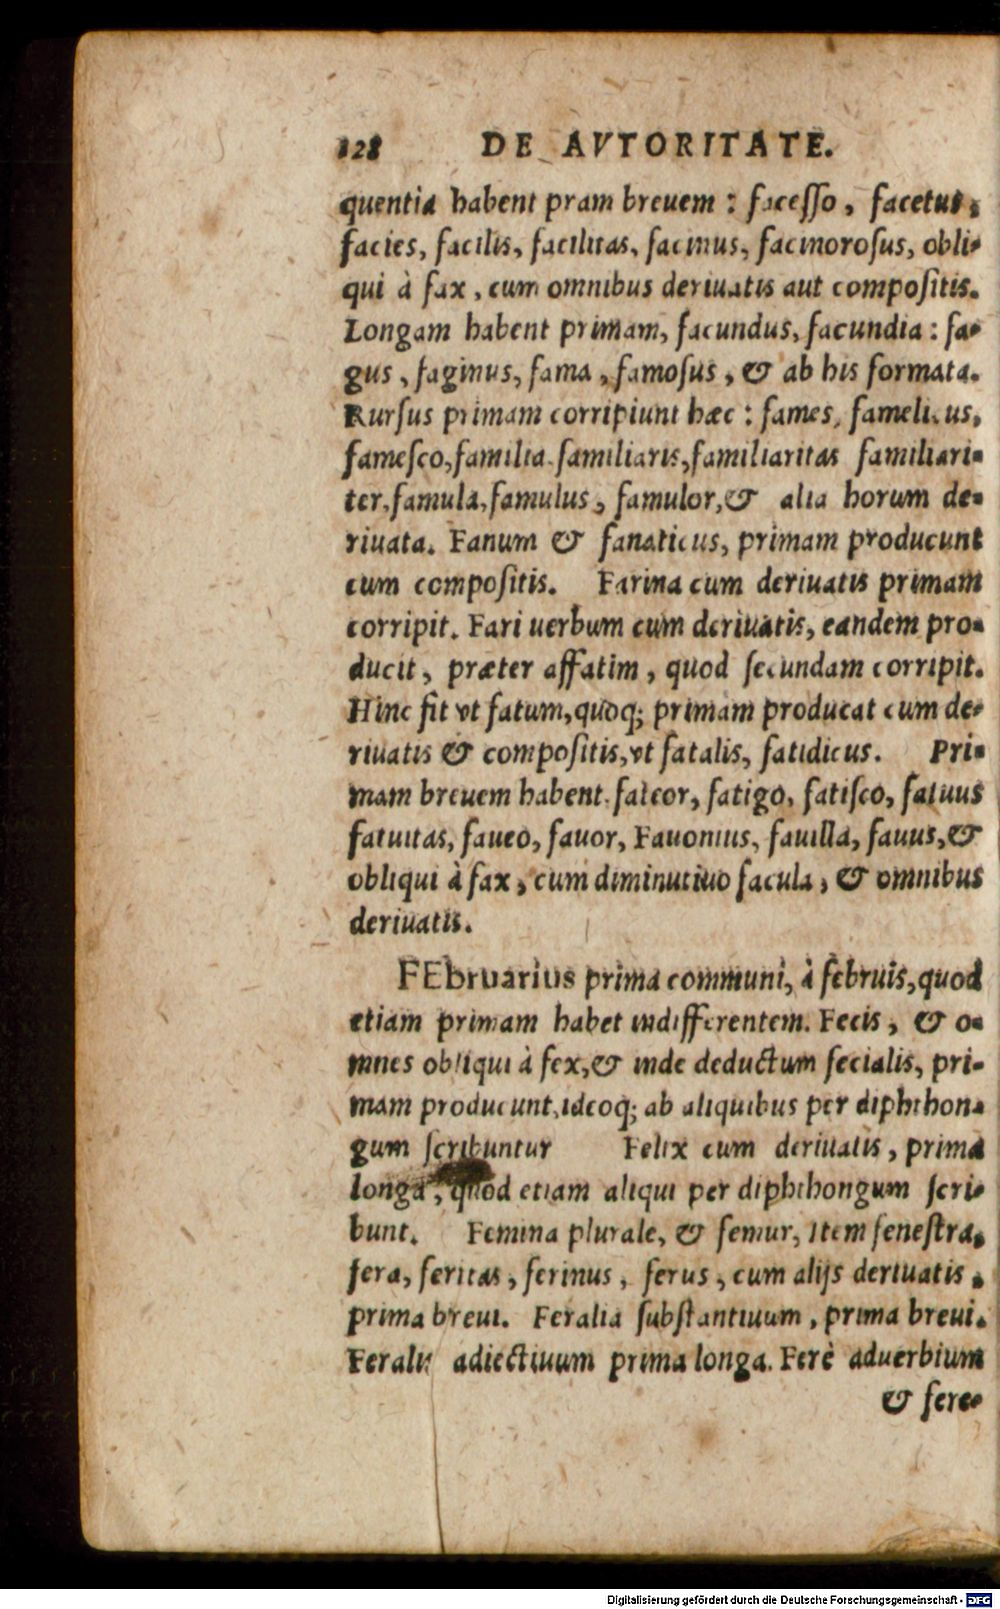 128 DE AVTORITATE.
quentia habent pram breuem : facesso, facetus,
facies, facilis, facilitas, facinus, facinorosus, obli-
qui à fax, cum omnibus deriuatis aut compositis.
Longam habent primam, facundus, facundia : fa-
gus, faginus, fama, famosus, & ab his formata.
Rursus primam corripiunt hæc : fames, famelicus,
famesco, familia. familiaris, familiaritas familiari-
ter, famula, famulus, famulor, & alia horum de-
riuata. Fanum & fanaticus, primam producunt
cum compositis. Farina cum deriuatis primam
corripit. Fari uerbum cum deriuatis, eandem pro-
ducit, præter affatim, quod secundam corripit.
Hinc fit vt fatum, quoq; primam producat cum de-
riuatis & compositis, vt fatalis, fatidicus. Pri-
mam breuem habent. fateor, fatigo, fatisco, fatuus
fatuitas, faueo, fauor, Fauonius, fauilla, fauus, &
obliqui à fax, cum diminutiuo facula, & omnibus
deriuatis.
FEbruarius prima communi, à februis, quod
etiam primam habet indifferentem. Fecis, & o-
mnes obliqui à fex, & inde deductum fecialis, pri-
mam producunt, ideoq; ab aliquibus per diphthon-
gum scribuntur Felix cum deriuatis, prima
longa, quod etiam aliqui per diphthongum scri-
bunt. Femina plurale, & femur, Item fenestra,
fera, feritas, ferinus, ferus, cum alijs deriuatis,
prima breui. Feralia substantiuum, prima breui.
Feralis adiectiuum prima longa. Ferè aduerbium
& fere-
Digitalisierung gefördert durch die Deutsche Forschungsgemeinschaft - DFG